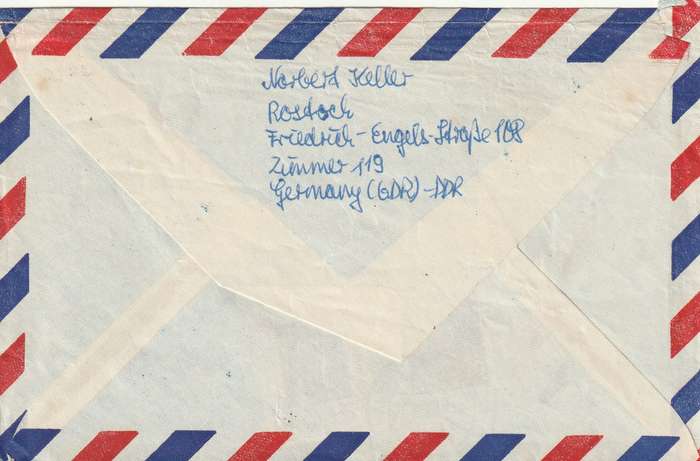 Norbert Keller
Rostock
Friedrich-Engels-Straße 108
Zimmer 119
Germany (GDR)-DDR